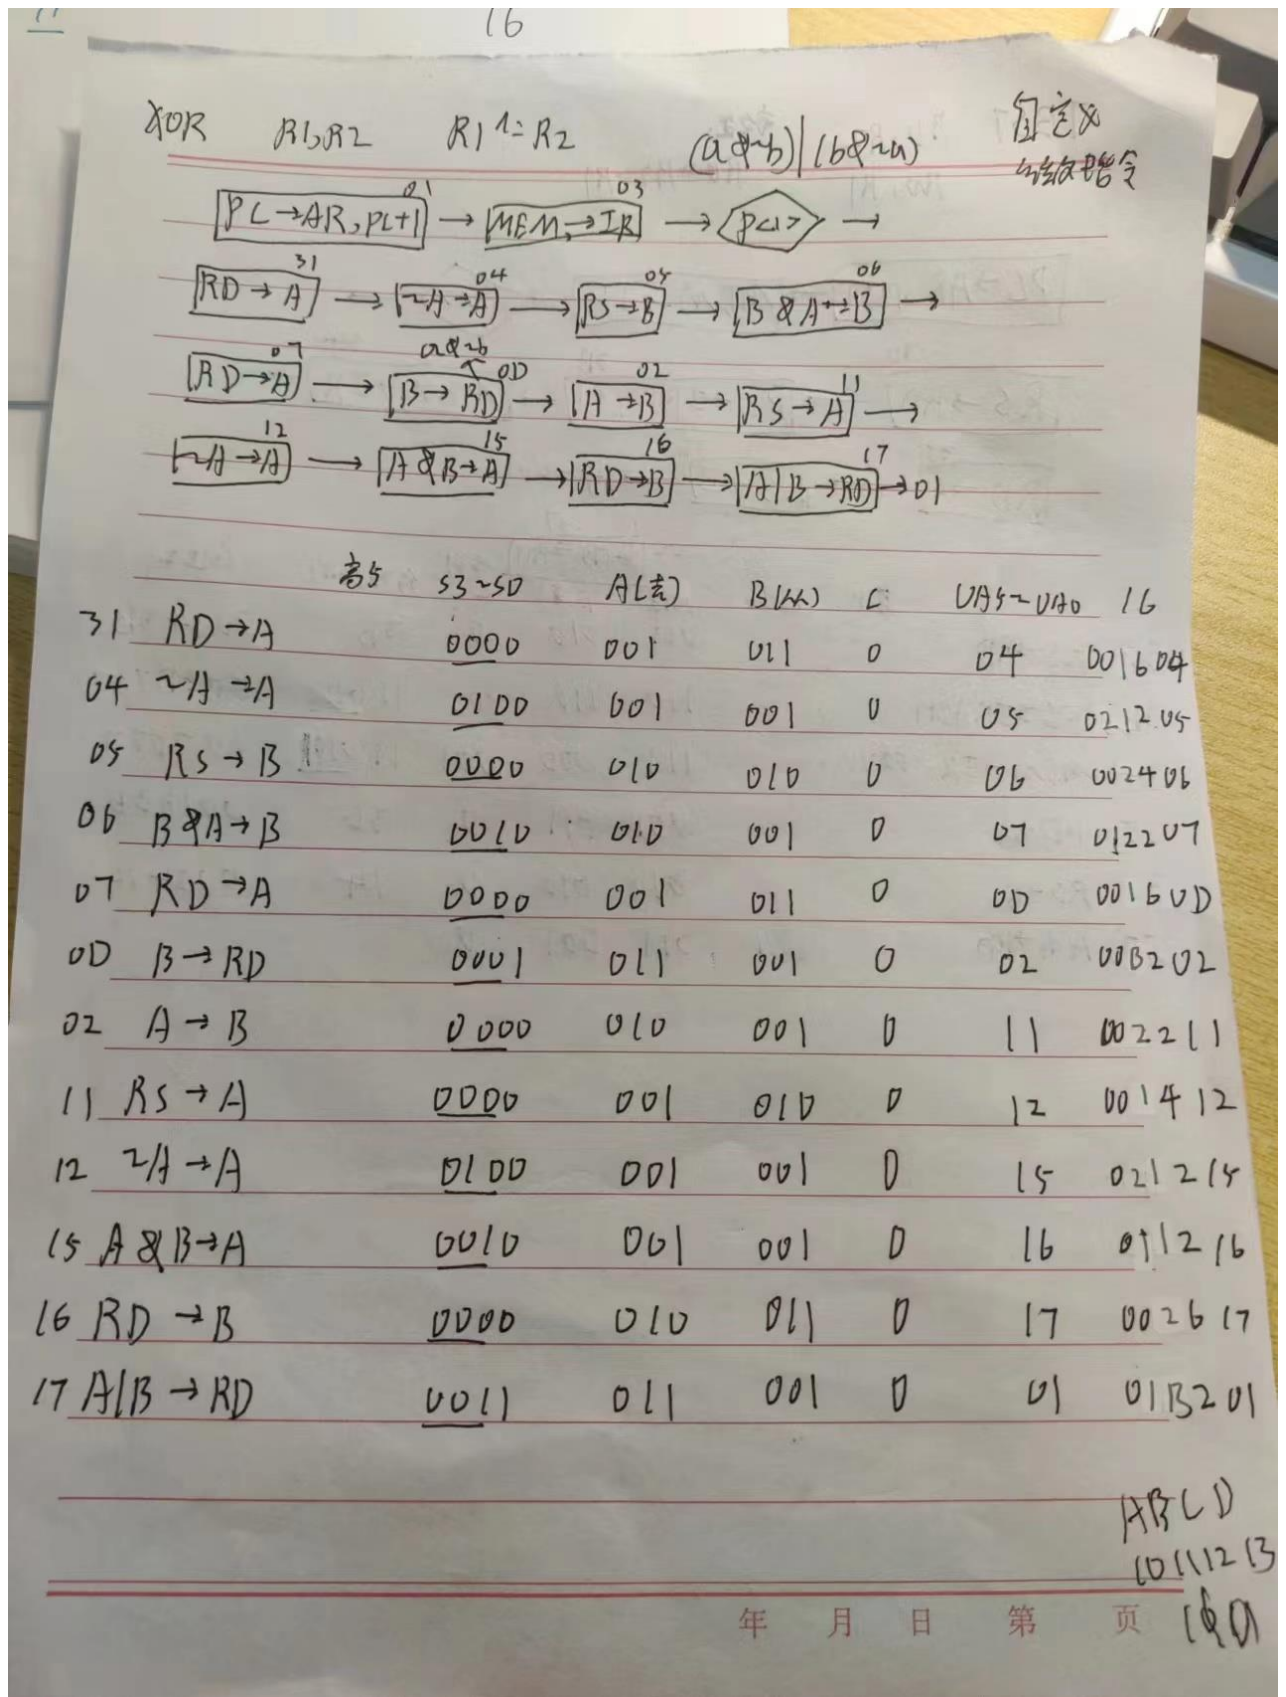 16
XOR R1,R2 R1^=R2 (a&~b)|(b&~a) 自定义
等效指令
01 03
PC→AR,PC+1 → MEM→IR → P<1> →
31 04 05 06
RD→A → ~A→A → RS→B → B&A→B →
a&~b
07 0D 02 11
RD→A → B→RD → A→B → RS→A →
12 15 16 17
~A→A → A&B→A → RD→B → A|B→RD →01
高5 S3~S0 A(去) B(从) C UA5~UA0 16
31 RD→A 0000 001 011 0 04 001604
04 ~A→A 0100 001 001 0 05 021205
05 RS→B 0000 010 010 0 06 002406
06 B&A→B 0010 010 001 0 07 012207
07 RD→A 0000 001 011 0 0D 00160D
0D B→RD 0001 011 001 0 02 00B202
02 A→B 0000 010 001 0 11 002211
11 RS→A 0000 001 010 0 12 001412
12 ~A→A 0100 001 001 0 15 021215
15 A&B→A 0010 001 001 0 16 011216
16 RD→B 0000 010 011 0 17 002617
17 A|B→RD 0011 011 001 0 01 01B201
ABCD
10111213
年 月 日 第 页